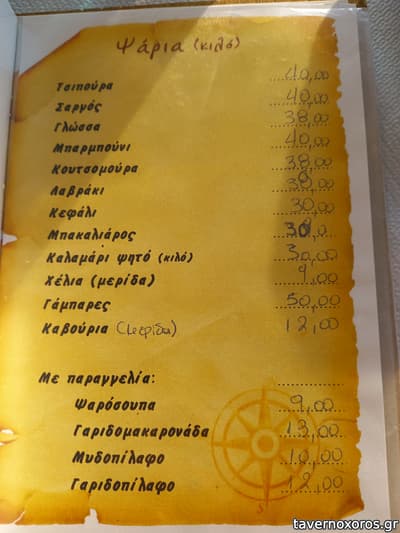 Ψάρια (κιλό)
Τσιπούρα 40,00
Σαργός 40,00
Γλώσσα 38,00
Μπαρμπούνι 40,00
Κουτσομούρα 38,00
Λαβράκι
Κεφάλι 30,00
Μπακαλιάρος
Καλαμάρι ψητό (κιλό) 30,00
Χέλια (μερίδα) 9,00
Γάμπαρες 50,00
Καβούρια (μερίδα) 12,00
Με παραγγελία:
Ψαρόσουπα 9,00
Γαριδομακαρονάδα 13,00
Μυδοπίλαφο 10,00
Γαριδοπίλαφο 12,00
S
tavernoxoros.gr